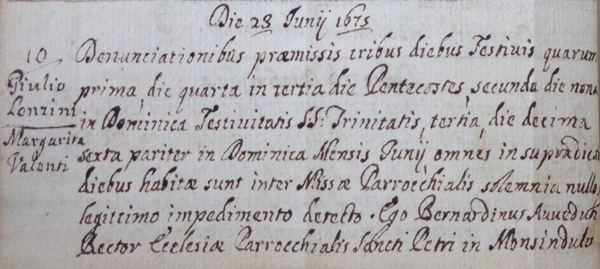 Die 28 Junij 1675
10
Giulio
Lenzini
Margarita
Valenti
Denunciationibus præmissis tribus diebus Festivis quarum
prima, die quarta in tertia die Pentecostes, secunda die nona
in Dominica Festivitatis SS: Trinitatis, tertia, die decima
sexta pariter in Dominica Mensis Junij omnes in supradictis
diebus habitæ sunt inter Missæ Parrocchialis solemnia nullo,
legittimo impedimento detecto. Ego Bernardinus
Rector Ecclesiæ Parrocchialis Sancti Petri in Monsindulo